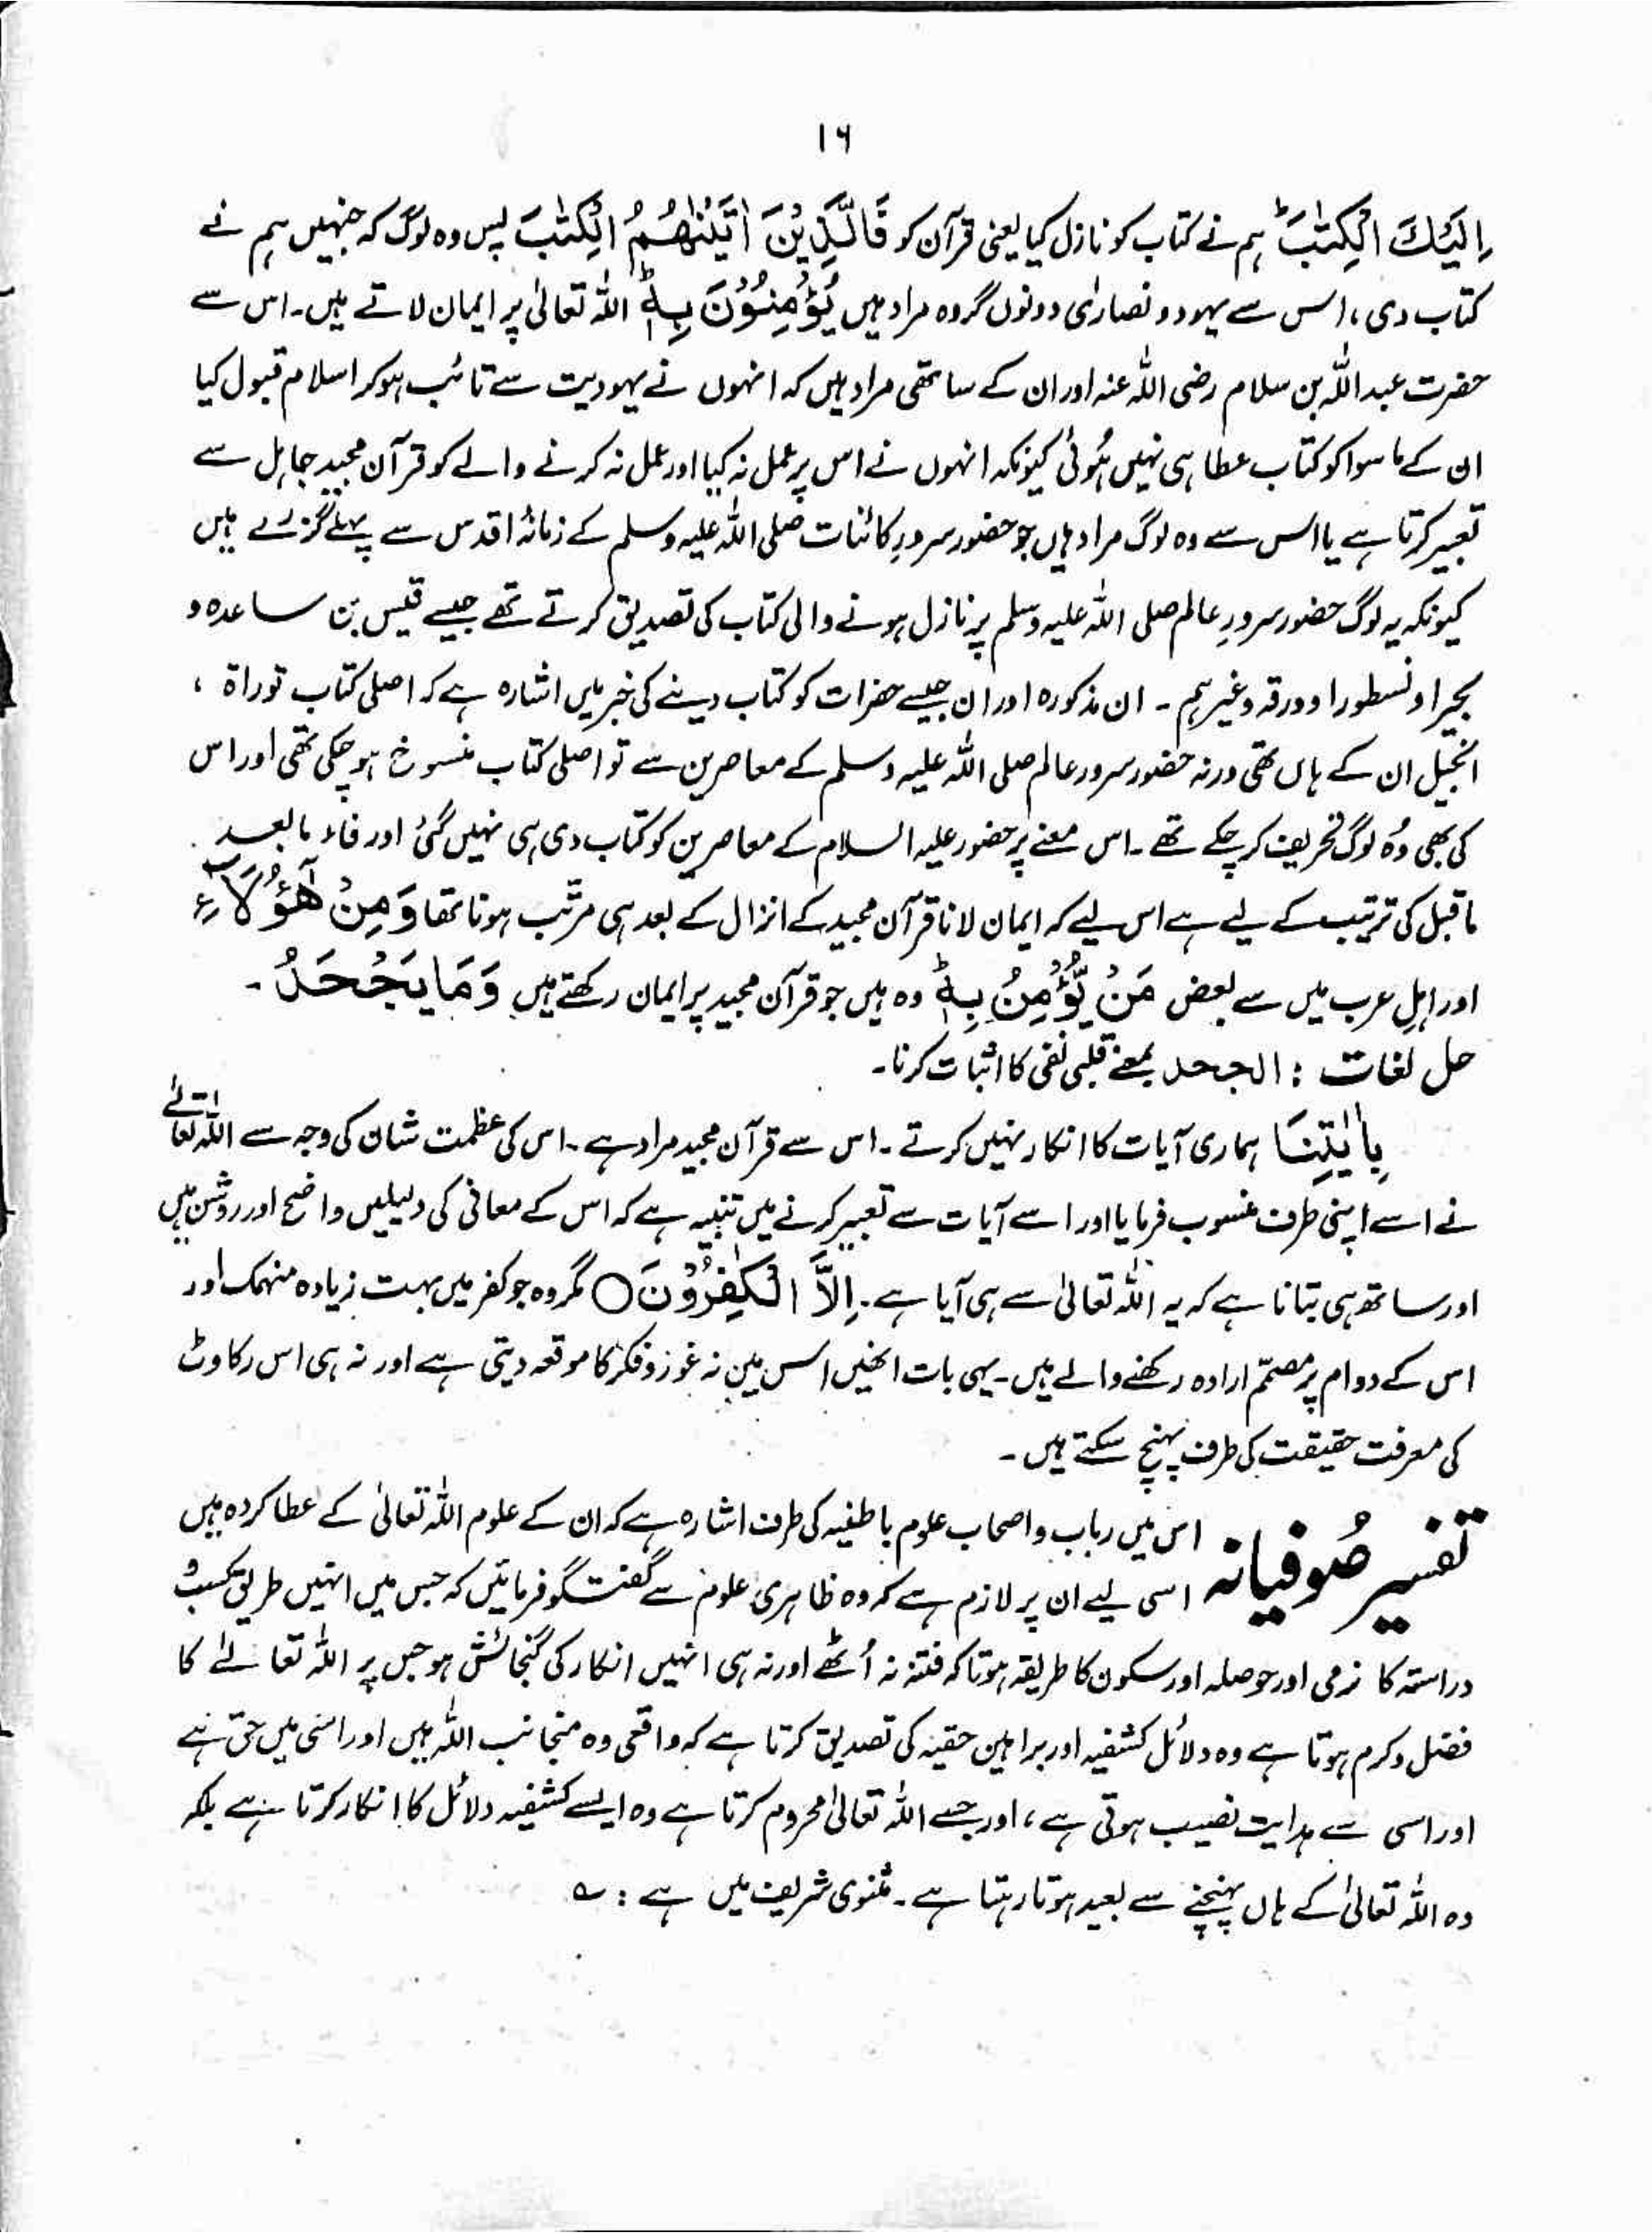 ۱۶
اِلَيْكَ الْكِتٰبَ ؕ ہم نے کتاب کو نازل کیا یعنی قرآن کو فَالَّذِيْنَ اٰتَيْنٰهُمُ الْكِتٰبَ پس وہ لوگ کہ جنہیں ہم نے
کتاب دی، اس سے یہود و نصاریٰ دونوں گروہ مراد ہیں يُؤْمِنُوْنَ بِهٖ ؕ اللہ تعالیٰ پر ایمان لاتے ہیں۔ اس سے
حضرت عبداللہ بن سلام رضی اللہ عنہ اور ان کے ساتھی مراد ہیں کہ انہوں نے یہودیت سے تائب ہو کر اسلام قبول کیا
ان کے ماسوا کو کتاب عطا ہی نہیں ہُوئی کیونکہ انہوں نے اس پر عمل نہ کیا اور عمل نہ کرنے والے کو قرآن مجید جاہل سے
تعبیر کرتا ہے یا اس سے وہ لوگ مراد ہیں جو حضور سرورِ کائنات صلی اللہ علیہ وسلم کے زمانۂ اقدس سے پہلے گزرے ہیں
کیونکہ یہ لوگ حضور سرورِ عالم صلی اللہ علیہ وسلم پر نازل ہونے والی کتاب کی تصدیق کرتے تھے جیسے قیس بن ساعدہ و
بحیرا و نسطورا و ورقہ وغیرہم ۔ ان مذکورہ اور ان جیسے حضرات کو کتاب دینے کی خبر میں اشارہ ہے کہ اصلی کتاب توراۃ ،
انجیل ان کے ہاں تھی ورنہ حضور سرور عالم صلی اللہ علیہ وسلم کے معاصرین سے تو اصلی کتاب منسوخ ہو چکی تھی اور اس
کی بھی وُہ لوگ تحریف کر چکے تھے ۔ اس معنے پر حضور علیہ السلام کے معاصرین کو کتاب دی ہی نہیں گئی اور فاء مابعد
ماقبل کی ترتیب کے لیے ہے اس لیے کہ ایمان لانا قرآن مجید کے انزال کے بعد ہی مرتّب ہونا تھا وَمِنْ هٰٓؤُلَآءِ
اور اہلِ عرب میں سے بعض مَنْ يُّؤْمِنُ بِهٖ ؕ وہ ہیں جو قرآن مجید پر ایمان رکھتے ہیں وَمَا يَجْحَدُ ۔
حل لغات : الجحد بمعنے قلبی نفی کا اثبات کرنا۔
بِاٰيٰتِنَا ہماری آیات کا انکار نہیں کرتے ۔ اس سے قرآن مجید مراد ہے ۔ اس کی عظمت شان کی وجہ سے اللہ تعالےٰ
نے اسے اپنی طرف منسوب فرمایا اور اسے آیات سے تعبیر کرنے میں تنبیہ ہے کہ اس کے معانی کی دلیلیں واضح اور روشن ہیں
اور ساتھ ہی بتانا ہے کہ یہ اللہ تعالیٰ سے ہی آیا ہے ۔ اِلَّا الْكٰفِرُوْنَ ○ مگر وہ جو کفر میں بہت زیادہ منہمک اور
اس کے دوام پر مصمّم ارادہ رکھنے والے ہیں ۔ یہی بات انھیں اس میں نہ غور و فکر کا موقعہ دیتی ہے اور نہ ہی اس رکاوٹ
کی معرفت حقیقت کی طرف پہنچ سکتے ہیں ۔
تفسیر صُوفیانہ اس میں رباب و اصحاب علوم باطنیہ کی طرف اشارہ ہے کہ ان کے علوم اللہ تعالیٰ کے عطا کردہ ہیں
اسی لیے ان پر لازم ہے کہ وہ ظاہری علوم سے گفتگو فرمائیں کہ جس میں انہیں طریق کسب و
دراستہ کا نرمی اور حوصلہ اور سکون کا طریقہ ہو تاکہ فتنہ نہ اُٹھے اور نہ ہی انہیں انکار کی گنجائش ہو جس پر اللہ تعالےٰ کا
فضل و کرم ہوتا ہے وہ دلائل کشفیہ اور براہین حقیہ کی تصدیق کرتا ہے کہ واقعی وہ منجانب اللہ ہیں اور اسی میں حق ہے
اور اسی سے ہدایت نصیب ہوتی ہے، اور جسے اللہ تعالیٰ محروم کرتا ہے وہ ایسے کشفیہ دلائل کا انکار کرتا ہے بلکہ
وہ اللہ تعالیٰ کے ہاں پہنچنے سے بعید ہوتا رہتا ہے ۔ مثنوی شریف میں ہے : ؎